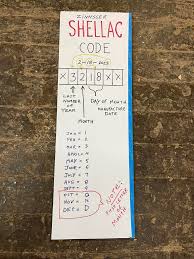 ZINNSSER
SHELLAC
CODE
2-18-2023
X 3 2 1 8 X X
LAST
NUMBER
OF
YEAR
MONTH
DAY OF MONTH
MANUFACTURE
DATE
JAN = 1
FEB = 2
MAR = 3
APRIL = 4
MAY = 5
JUNE = 6
JULY = 7
AUG = 8
SEPT = 9
OCT = O
NOV = N
DEC = D
NOTE:
MONTH